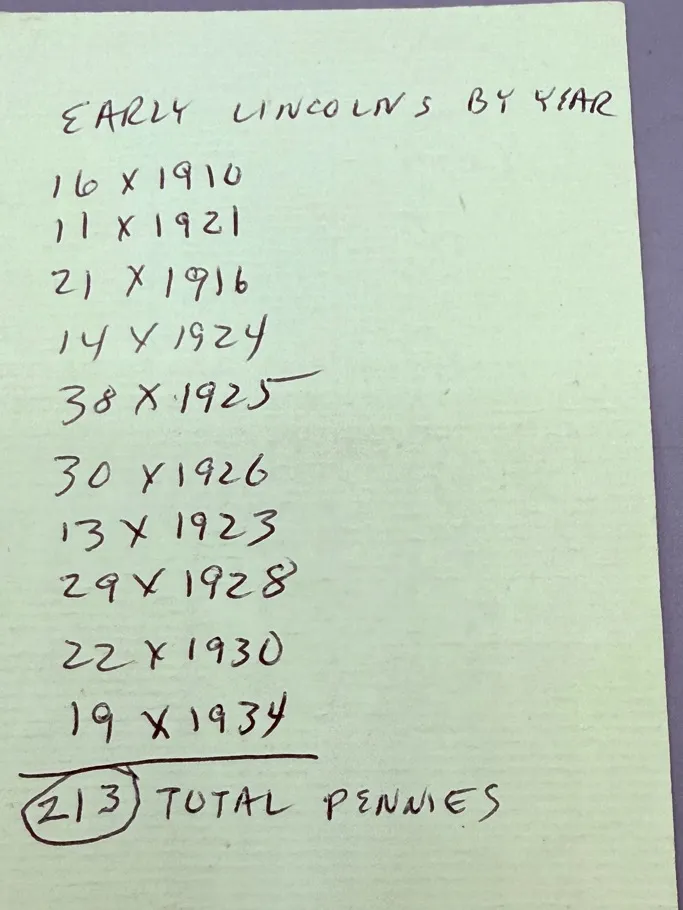 EARLY LINCOLNS BY YEAR
16 X 1910
11 X 1921
21 X 1916
14 X 1924
38 X 1925
30 X 1926
13 X 1923
29 X 1928
22 X 1930
19 X 1934
213 TOTAL PENNIES